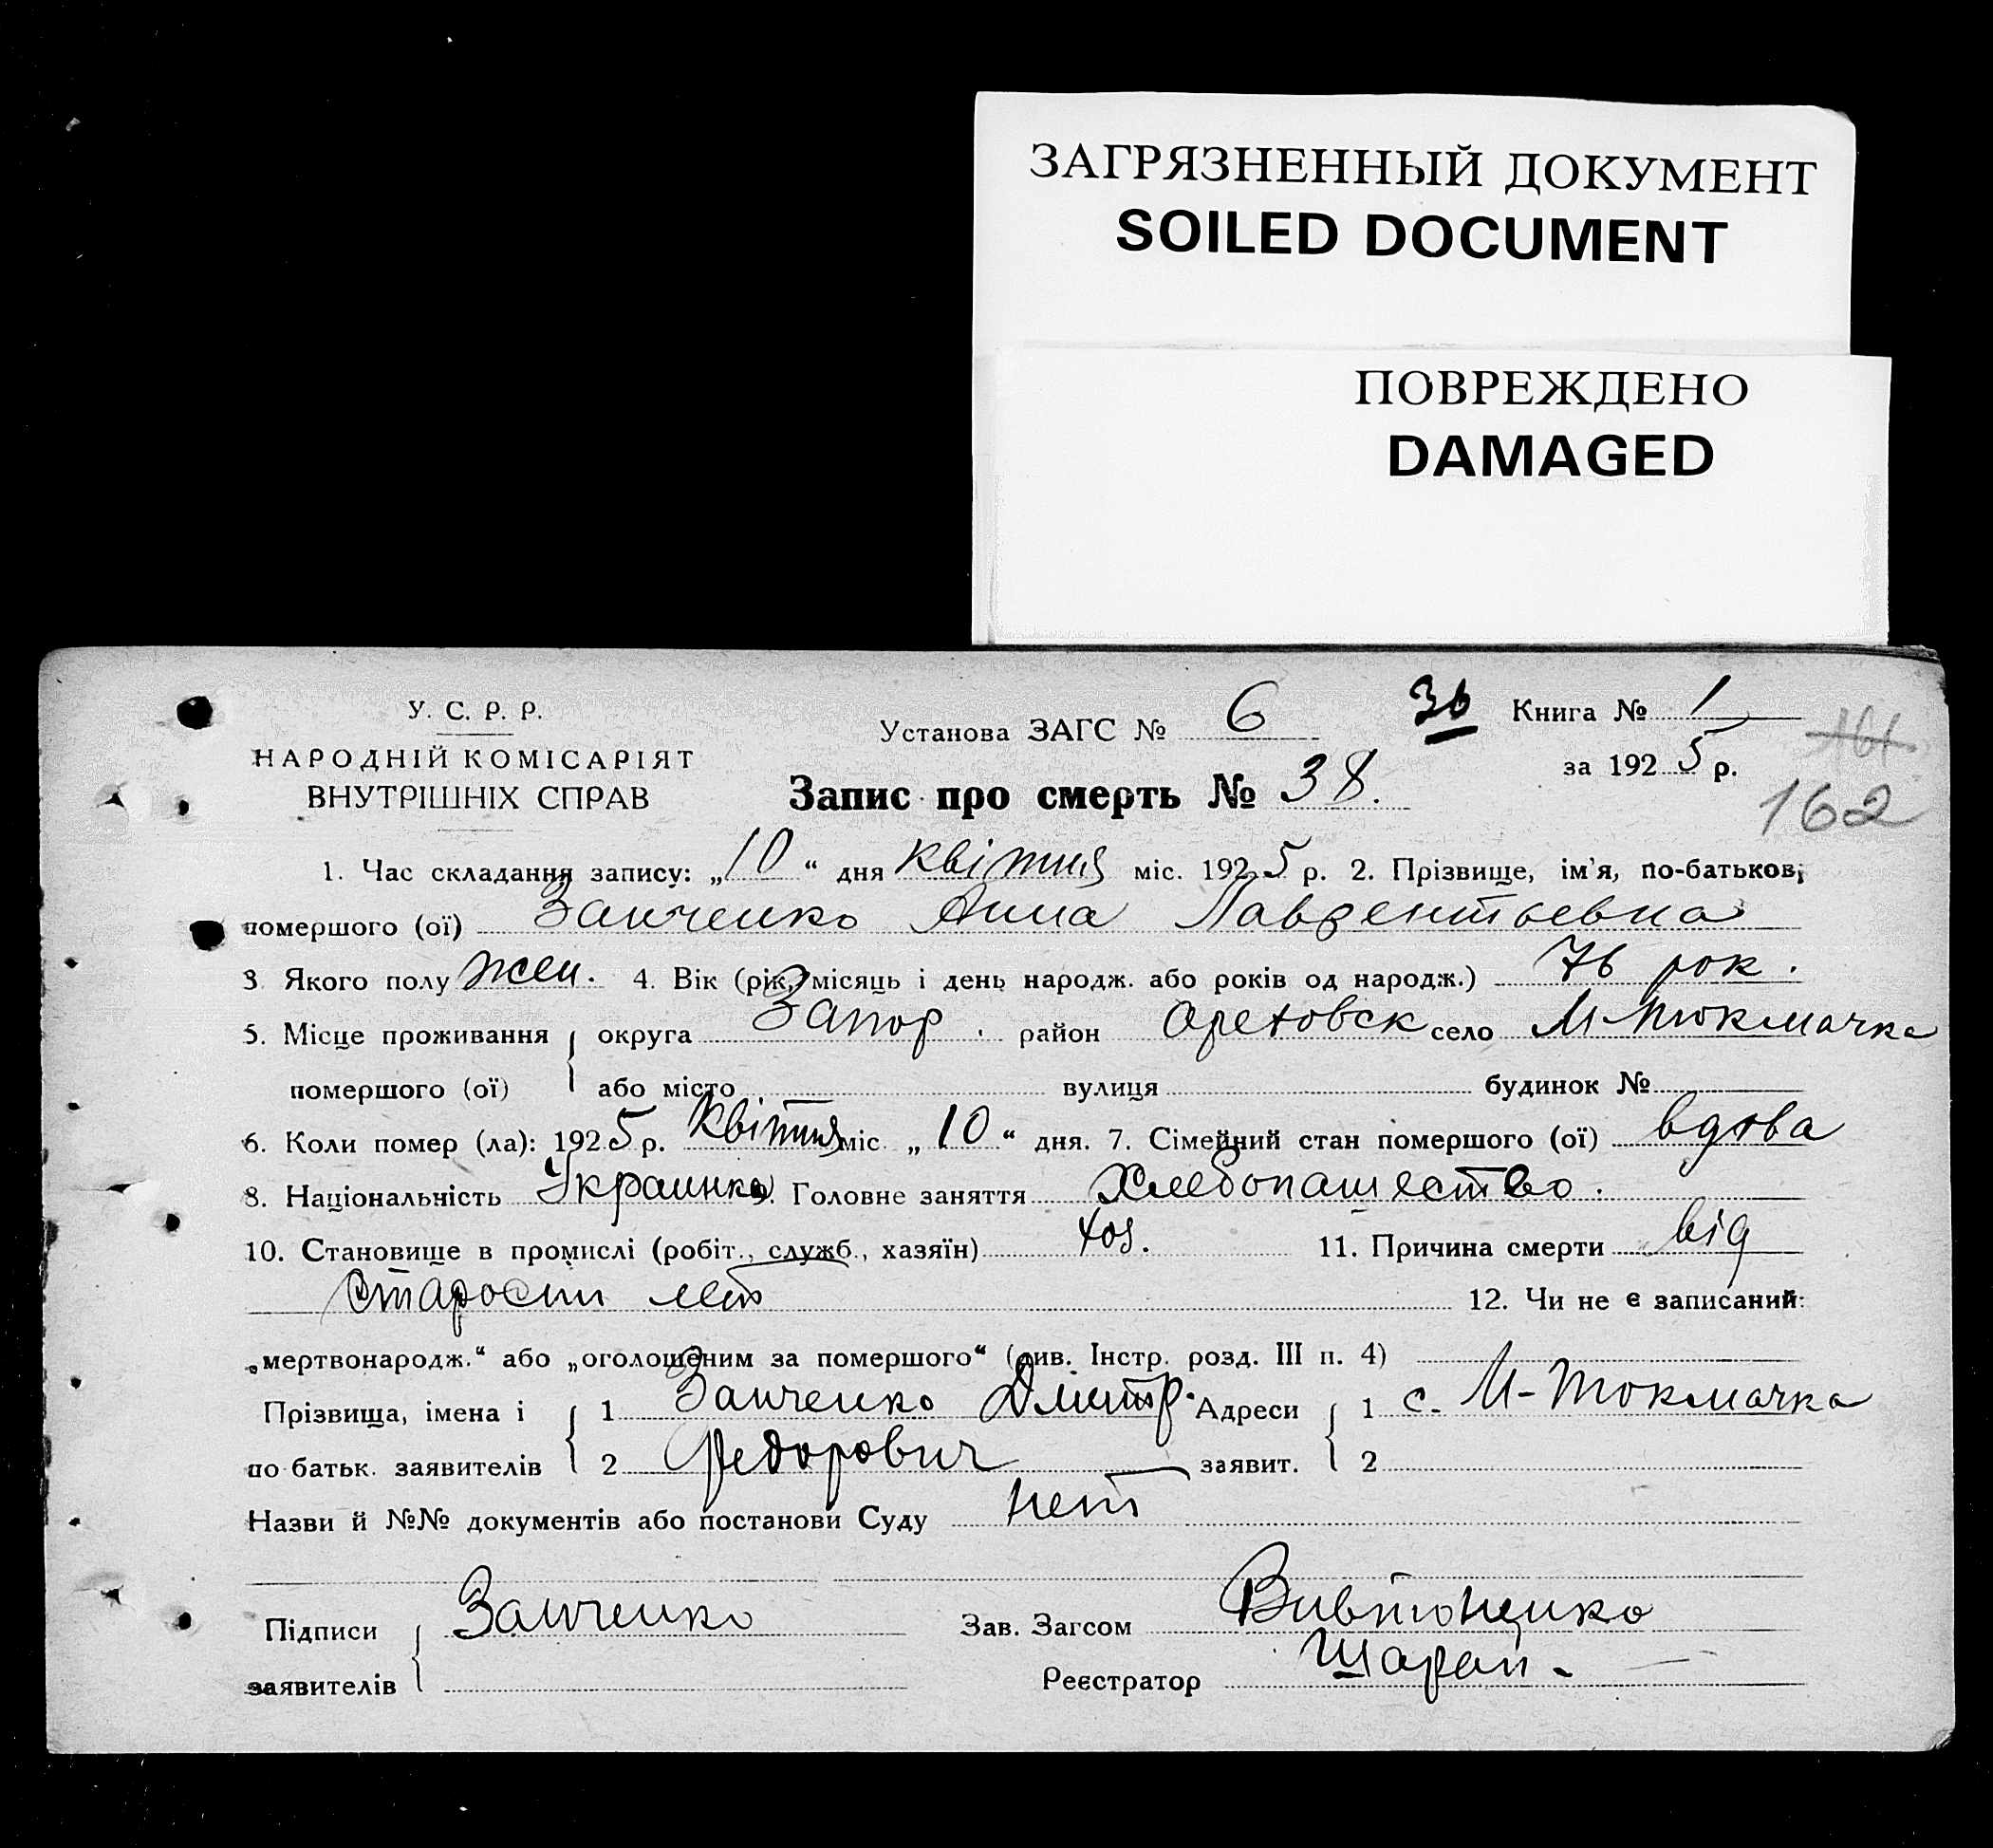 ЗАГРЯЗНЕННЫЙ ДОКУМЕНТ
SOILED DOCUMENT
ПОВРЕЖДЕНО
DAMAGED
У. С. Р. Р.
НАРОДНІЙ КОМІСАРІЯТ
ВНУТРІШНІХ СПРАВ
Установа ЗАГС № 6
36
Книга № 1
за 1925 р.
161
162
Запис про смерть № 38.
1. Час складання запису: „10“ дня квітня міс. 1925 р. 2. Прізвище, ім'я, по-батькові
помершого (ої) Занченко Анна Лаврентьевна
3 Якого полу жен. 4. Вік (рік, місяць і день народж. або років од народж.) 76 рок.
5. Місце проживання округа Запор. район Ореховск село М-Токмачка
помершого (ої) або місто вулиця будинок №
6. Коли помер (ла): 1925 р. квітня міс. „10“ дня. 7. Сімейний стан помершого (ої) вдова
8. Національність Украинка 9. Головне заняття Хлебопашество.
10. Становище в промислі (робіт., служб., хазяїн) хоз. 11. Причина смерти від
старости лет 12. Чи не є записаний:
„мертвонародж.“ або „оголошеним за помершого“ (див. Інстр. розд. III п. 4)
Прізвища, імена і 1 Занченко Дмитр. Адреси 1 с. М-Токмачка
по батьк. заявителів 2 Федорович заявит. 2
Назви й №№ документів або постанови Суду нет
Підписи Занченко Зав. Загсом
заявителів Реєстратор